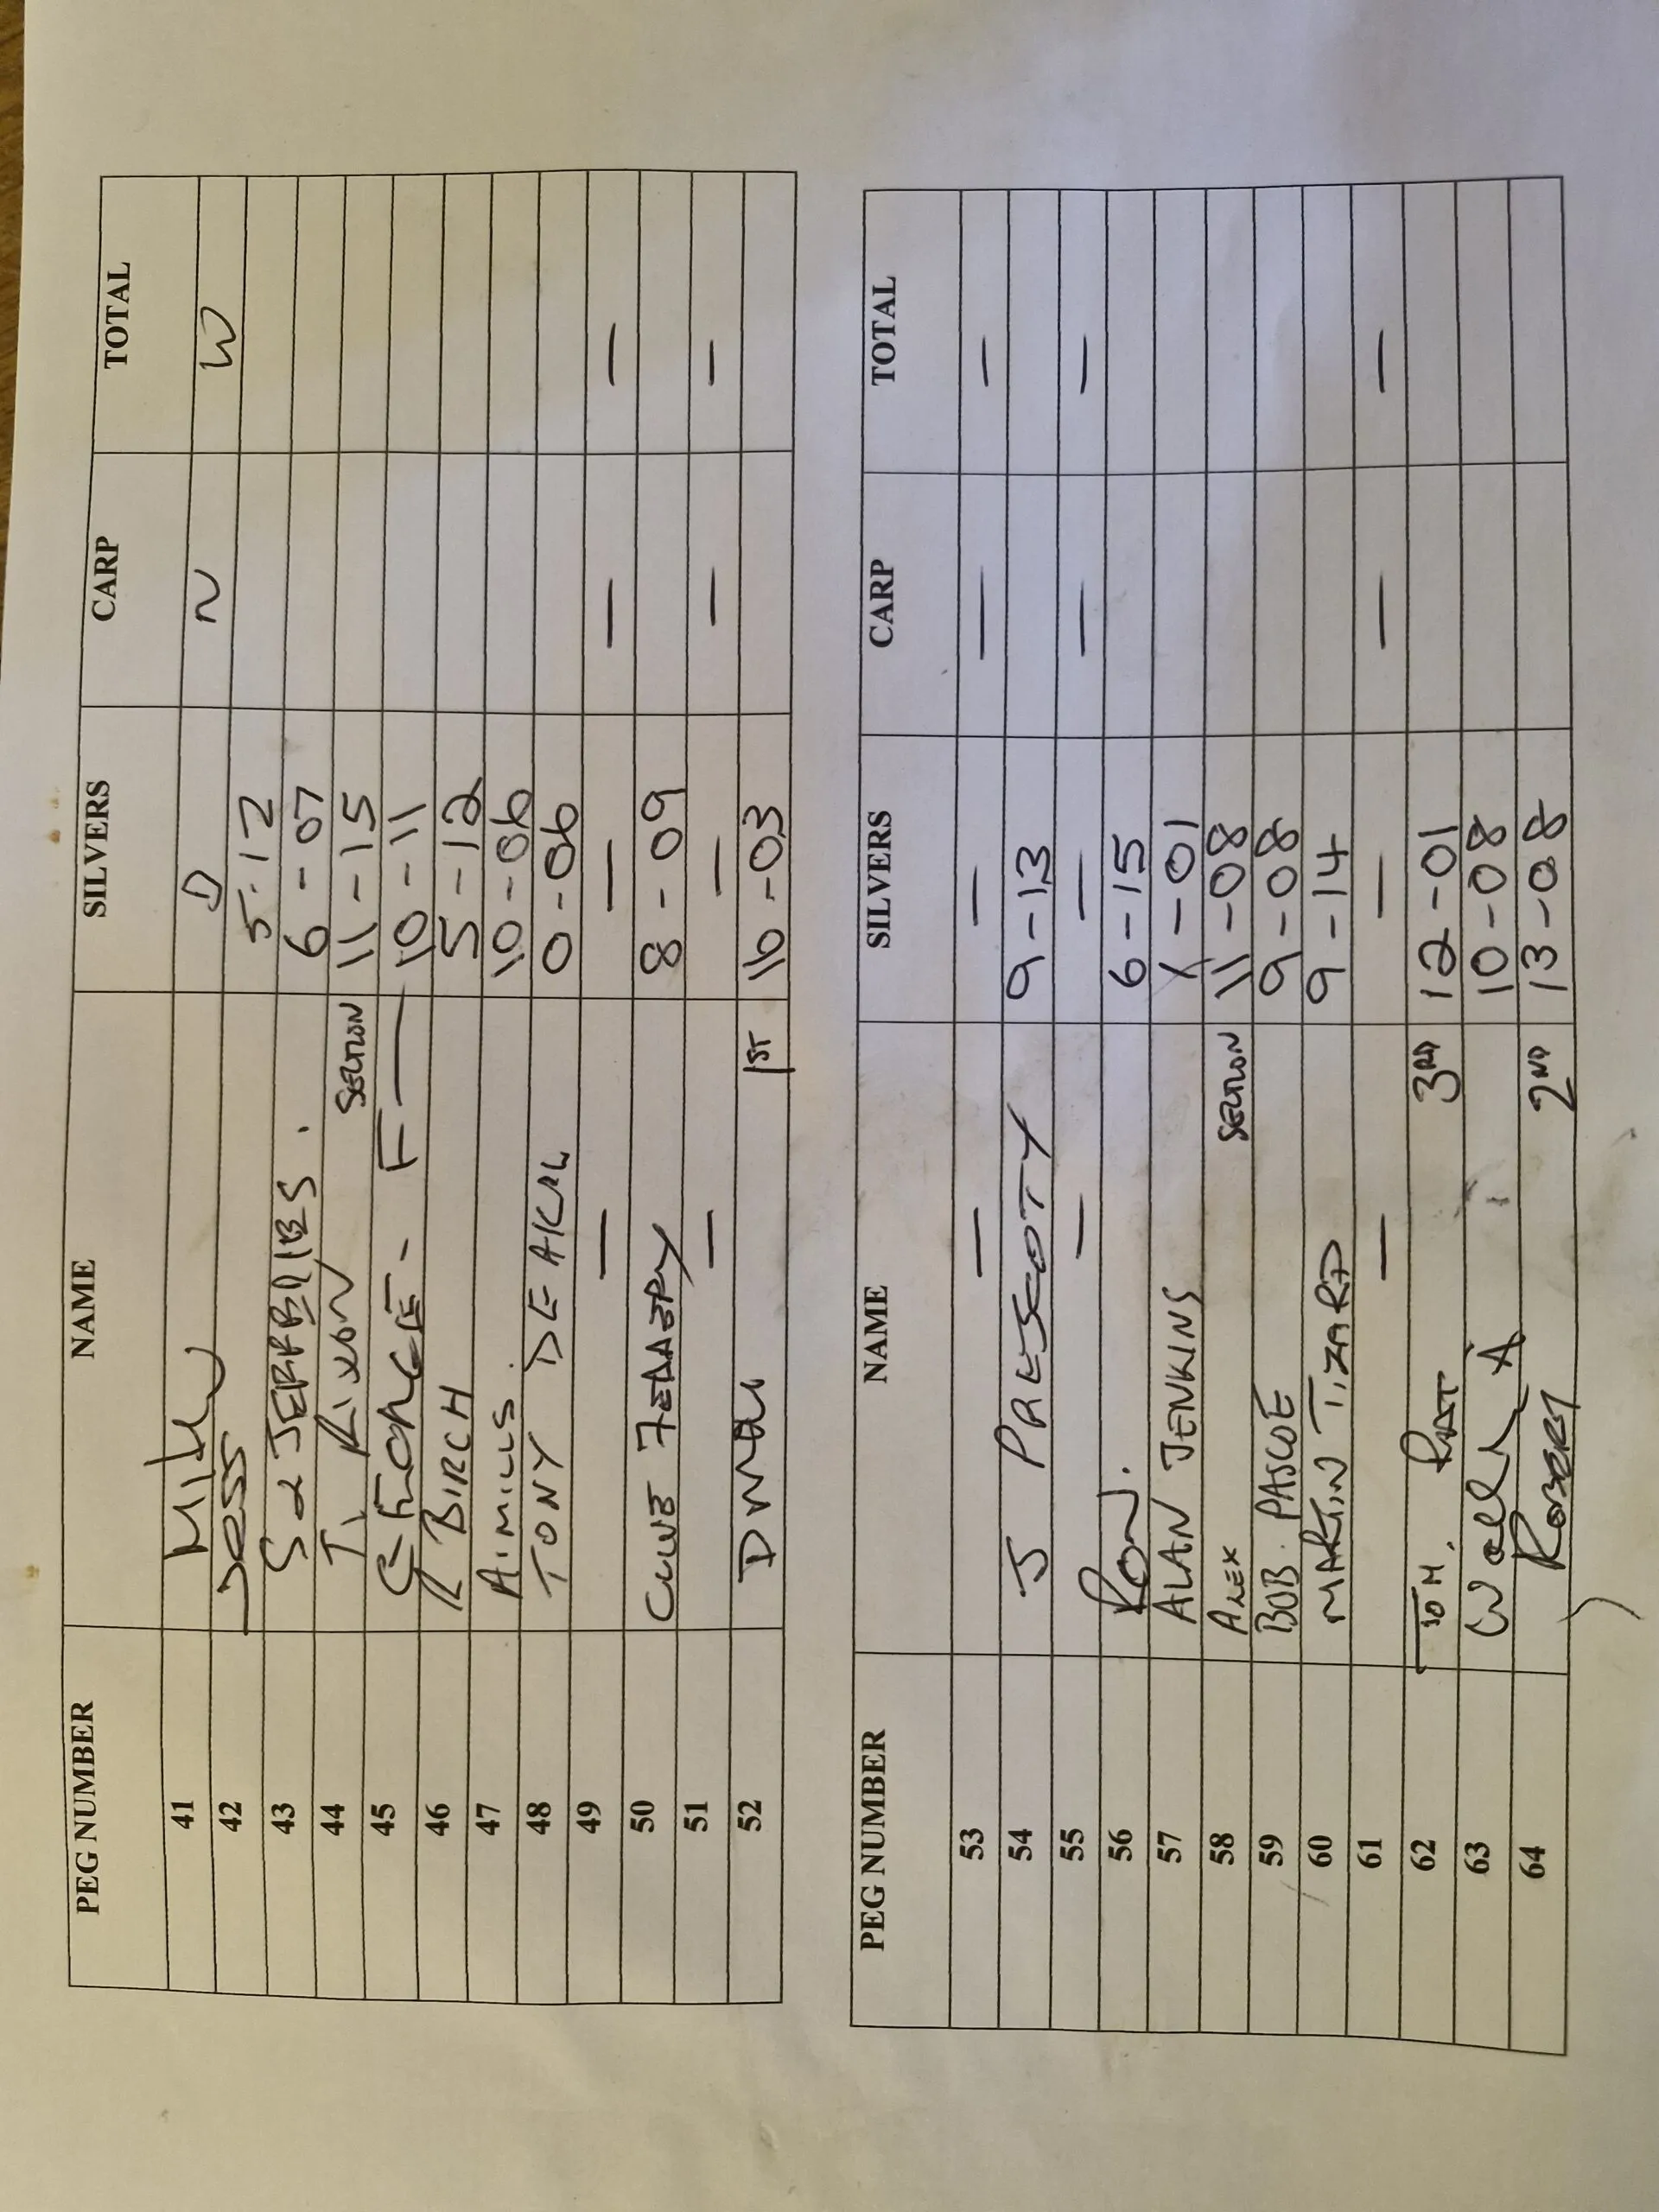 PEG NUMBER NAME SILVERS CARP TOTAL
41 Mike D N W
42 Jess 5-12
43 S 6-07
44 T. Rixon SECTION 11-15
45 GEORGE - F 10-11
46 R BIRCH 5-12
47 A. MILLS. 10-06
48 TONY DEAKAL 0-06
49 — — — —
50 CLIVE 8-09
51 — — — —
52 1ST 16-03
PEG NUMBER NAME SILVERS CARP TOTAL
53 — — — —
54 J PRESCOTT 9-13
55 — — — —
56 Ron J. 6-15
57 ALAN JENKINS 1-01
58 ALEX SECTION 11-08
59 BOB. PASCOE 9-08
60 MARTIN TIZARD 9-14
61 — — — —
62 TOM. 3RD 12-01
63 Wally A 10-08
64 ROBERT 2ND 13-08